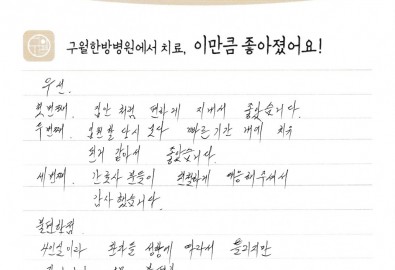 구월한방병원에서 치료, 이만큼 좋아졌어요!
우선.
첫번째. 집안 처럼 편하게 지내서 좋았습니다.
두번째. 입원할 당시 보다 빠른 기간 내에 치유
된거 같아서 좋았습니다.
세번째. 간호사 분들이 친절하게 대해주셔서
감사했습니다.
불편한점
4인실이라 환자들 성향에 따라서 틀리지만